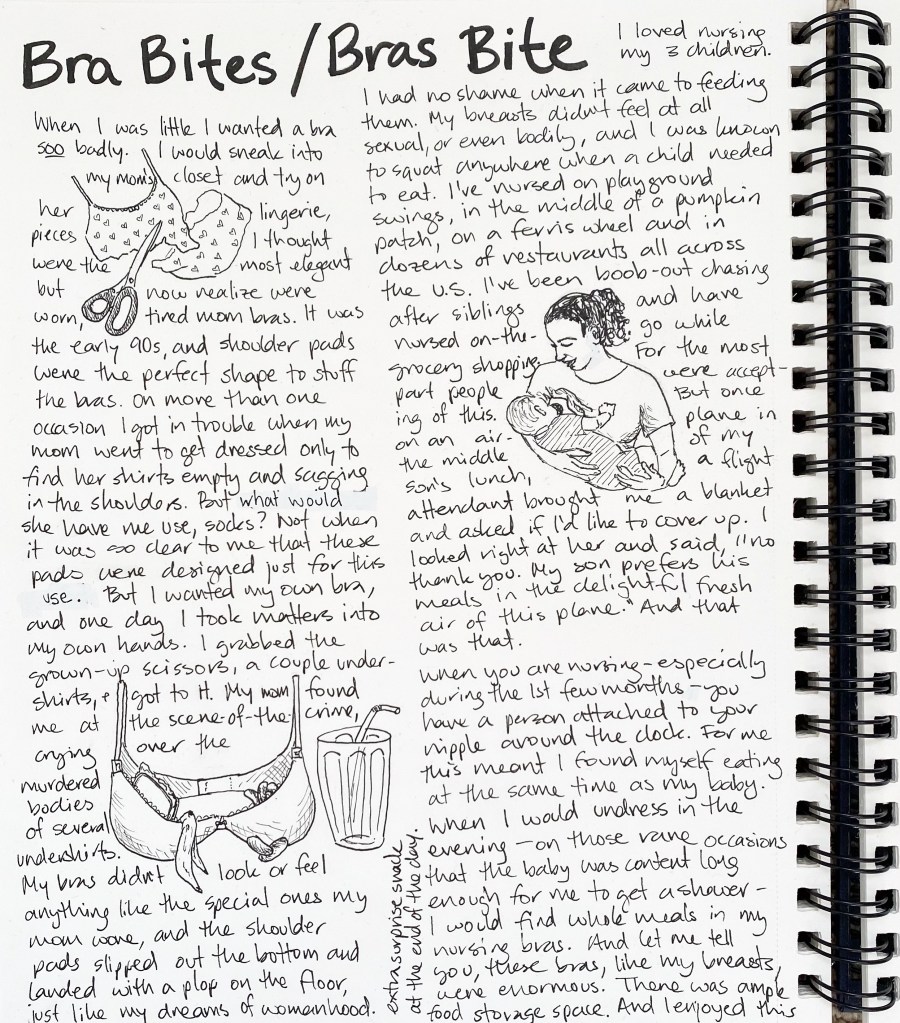 Bra Bites / Bras Bite
When I was little I wanted a bra
soo badly. I would sneak into
my mom's closet and try on
her lingerie,
pieces I thought
were the most elegant
but now realize were
worn, tired mom bras. It was
the early 90s, and shoulder pads
were the perfect shape to stuff
the bras. On more than one
occasion I got in trouble when my
mom went to get dressed only to
find her shirts empty and sagging
in the shoulders. But what would
she have me use, socks? Not when
it was so clear to me that these
pads were designed just for this
use. But I wanted my own bra,
and one day I took matters into
my own hands. I grabbed the
grown-up scissors, a couple under-
shirts, & got to it. My mom found
me at the scene-of-the-crime,
crying over the
murdered
bodies
of several
undershirts.
My bras didn't look or feel
anything like the special ones my
mom wore, and the shoulder
pads slipped out the bottom and
landed with a plop on the floor,
just like my dreams of womanhood.
I loved nursing
my 3 children.
I had no shame when it came to feeding
them. My breasts didn't feel at all
sexual, or even bodily, and I was known
to squat anywhere when a child needed
to eat. I've nursed on playground
swings, in the middle of a pumpkin
patch, on a ferris wheel and in
dozens of restaurants all across
the U.S. I've been boob-out chasing
after siblings and have
nursed on-the-go while
grocery shopping. For the most
part people were accept-
ing of this. But once
on an air-plane in
the middle of my
son's lunch, a flight
attendant brought me a blanket
and asked if I'd like to cover up. I
looked right at her and said, "no
thank you. My son prefers his
meals in the delightful fresh
air of this plane." And that
was that.
When you are nursing - especially
during the 1st few months - you
have a person attached to your
nipple around the clock. For me
this meant I found myself eating
at the same time as my baby.
When I would undress in the
evening - on those rare occasions
that the baby was content long
enough for me to get a shower -
I would find whole meals in my
nursing bras. And let me tell
you, these bras, like my breasts,
were enormous. There was ample
food storage space. And I enjoyed this
extra surprise snack
at the end of the day.